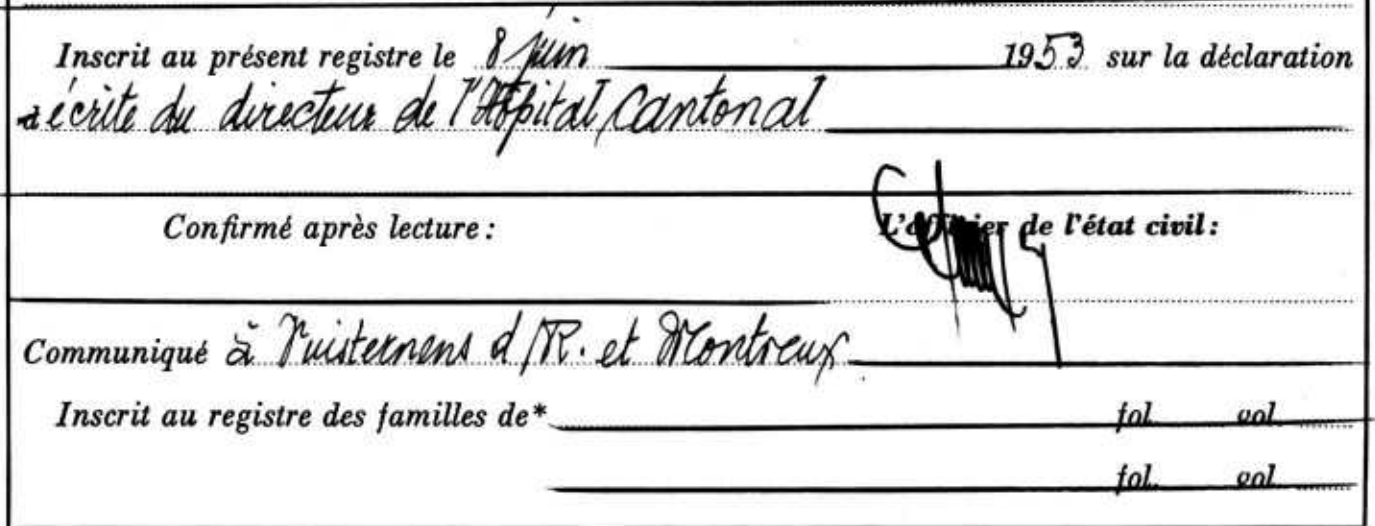 Inscrit au présent registre le 8 juin 1953 sur la déclaration
écrite du directeur de l'Hôpital Cantonal
Confirmé après lecture: L'officier de l'état civil:
Communiqué à Vuisternens d/R. et Montreux
Inscrit au registre des familles de* fol. vol.
fol. vol.